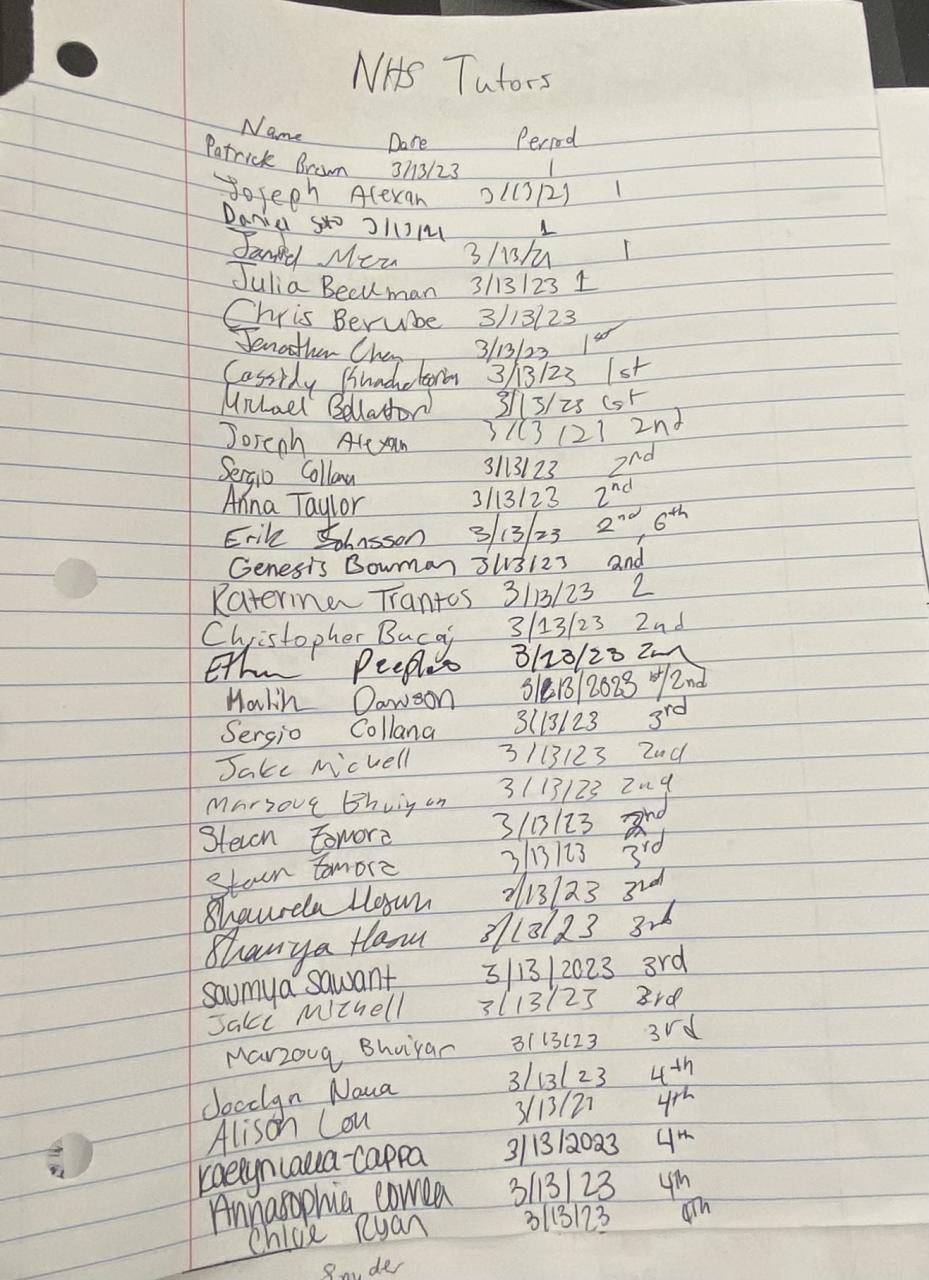 NHS Tutors
Name Date Period
Patrick Brown 3/13/23 1
Joseph Alexan 3/13/21 1
Daniel 3/13/21 1
3/13/21 1
Julia Beckman 3/13/23 1
Chris Berube 3/13/23
Jonathan Chen 3/13/23 1st
Cassidy 3/13/23 1st
Michael 3/13/23 1st
Joseph Alexan 3/13/21 2nd
Sergio Collana 3/13/23 2nd
Anna Taylor 3/13/23 2nd
Erik Johnsson 3/13/23 2nd, 6th
Genesis Bowman 3/13/23 2nd
Katerina Trantos 3/13/23 2
Christopher Bucaj 3/13/23 2nd
Ethan Peeples 3/23/23 2nd
Malik Dawson 3/13/2023 1st/2nd
Sergio Collana 3/13/23 3rd
Jake Michell 3/13/23 2nd
Marzouq Bhuiyan 3/13/23 2nd
Zamora 3/13/23 2nd
Zamora 3/13/23 3rd
3/13/23 3rd
3/13/23 3rd
Saumya Sawant 3/13/2023 3rd
Jake Michell 3/13/23 3rd
Marzouq Bhuiyan 3/13/23 3rd
Jocelyn Nava 3/13/23 4th
Alison 3/13/21 4th
3/13/2023 4th
Annasophia Correa 3/13/23 4th
Chloe Ryan 3/13/23 4th
Snyder